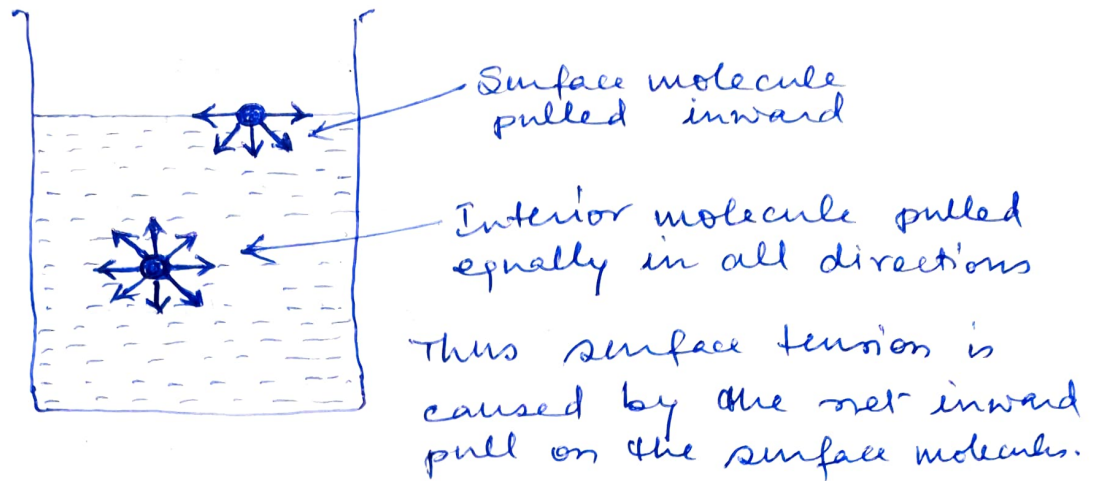 Surface molecule
pulled inward
Interior molecule pulled
equally in all directions
Thus surface tension is
caused by the net inward
pull on the surface molecules.